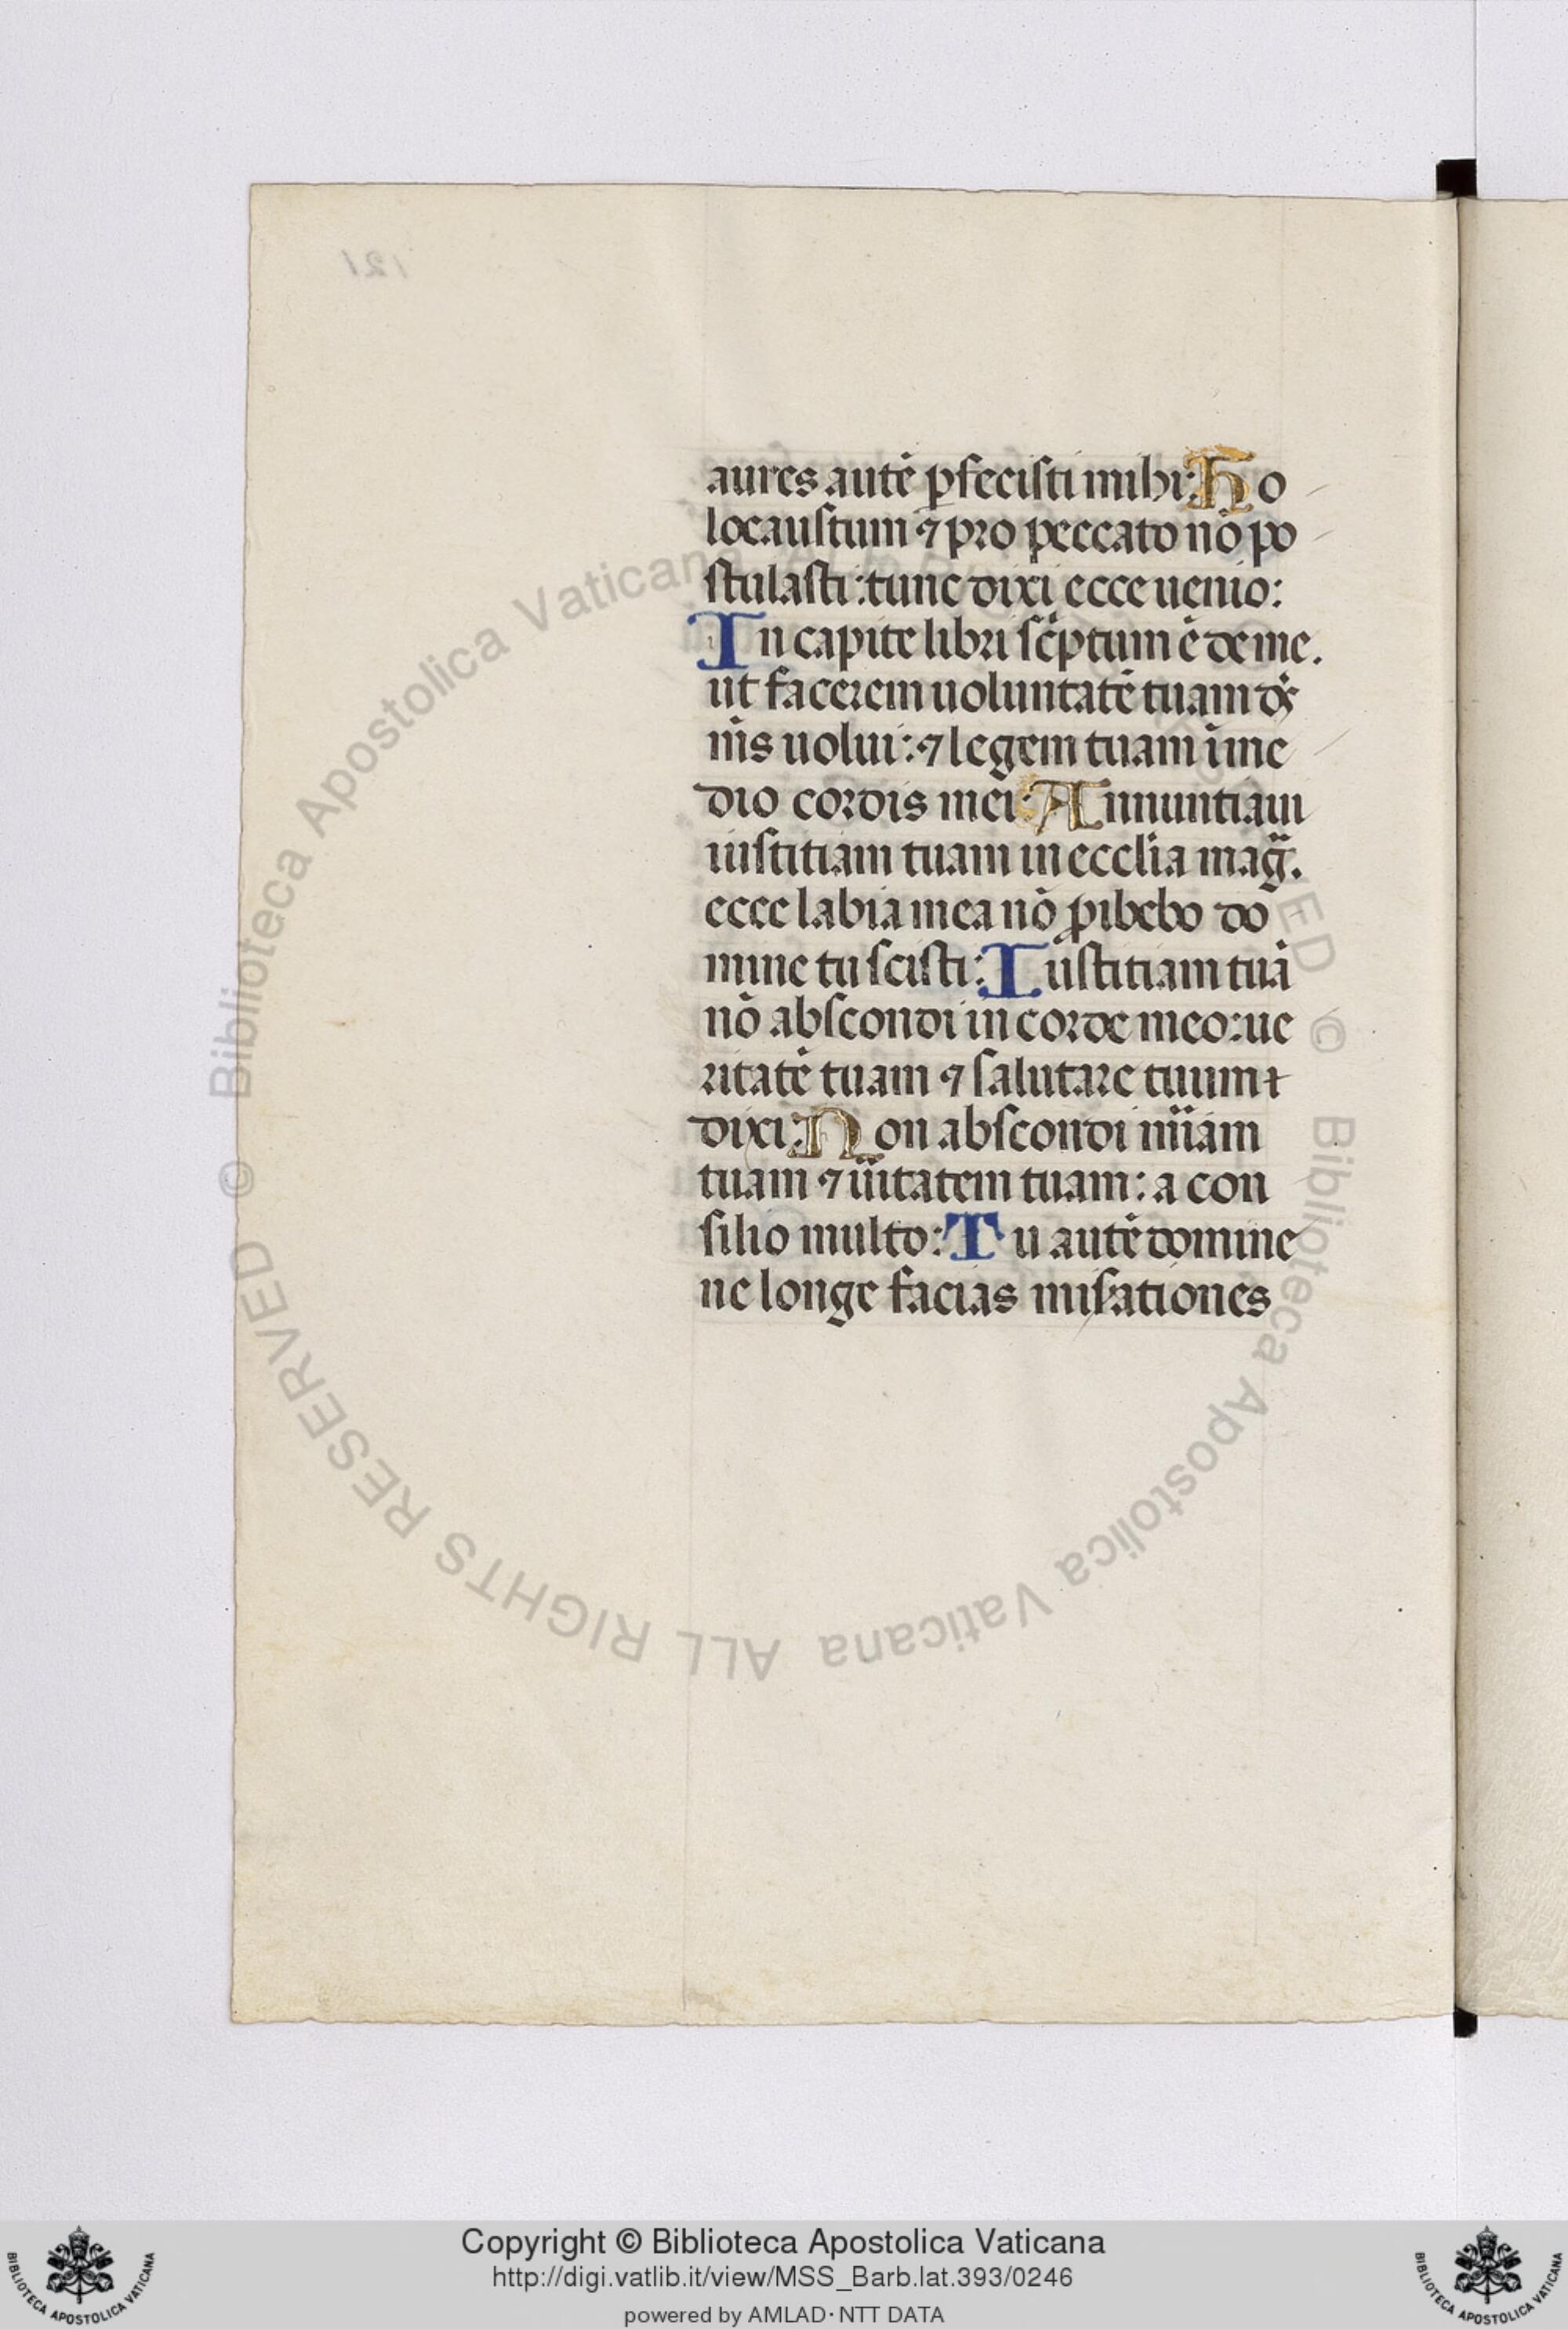 aures autē ꝑfecisti mihi: Ho
locaustum ⁊ pro peccato nō po
stulasti: tunc dixi ecce uenio:
In capite libri sc̄ptum ē de me.
ut facerem uoluntatē tuam ds̄
m̄s uolui: ⁊ legem tuam ī me
dio cordis mei: Annuntiaui
iustitiam tuam in ecclīa maḡ.
ecce labia mea nō ꝓibebo do
mine tu scisti: Iustitiam tuā
nō abscondi in corde meo: ue
ritatē tuam ⁊ salutare tuum
dixi: Non abscondi mīam
tuam ⁊ ūitatem tuam: a con
silio multo: Tu autē domine
ne longe facias misationes
121
© Biblioteca Apostolica Vaticana ALL RIGHTS RESERVED © Biblioteca Apostolica Vaticana
Copyright © Biblioteca Apostolica Vaticana
http://digi.vatlib.it/view/MSS_Barb.lat.393/0246
powered by AMLAD·NTT DATA
BIBLIOTECA APOSTOLICA VATICANA
BIBLIOTECA APOSTOLICA VATICANA